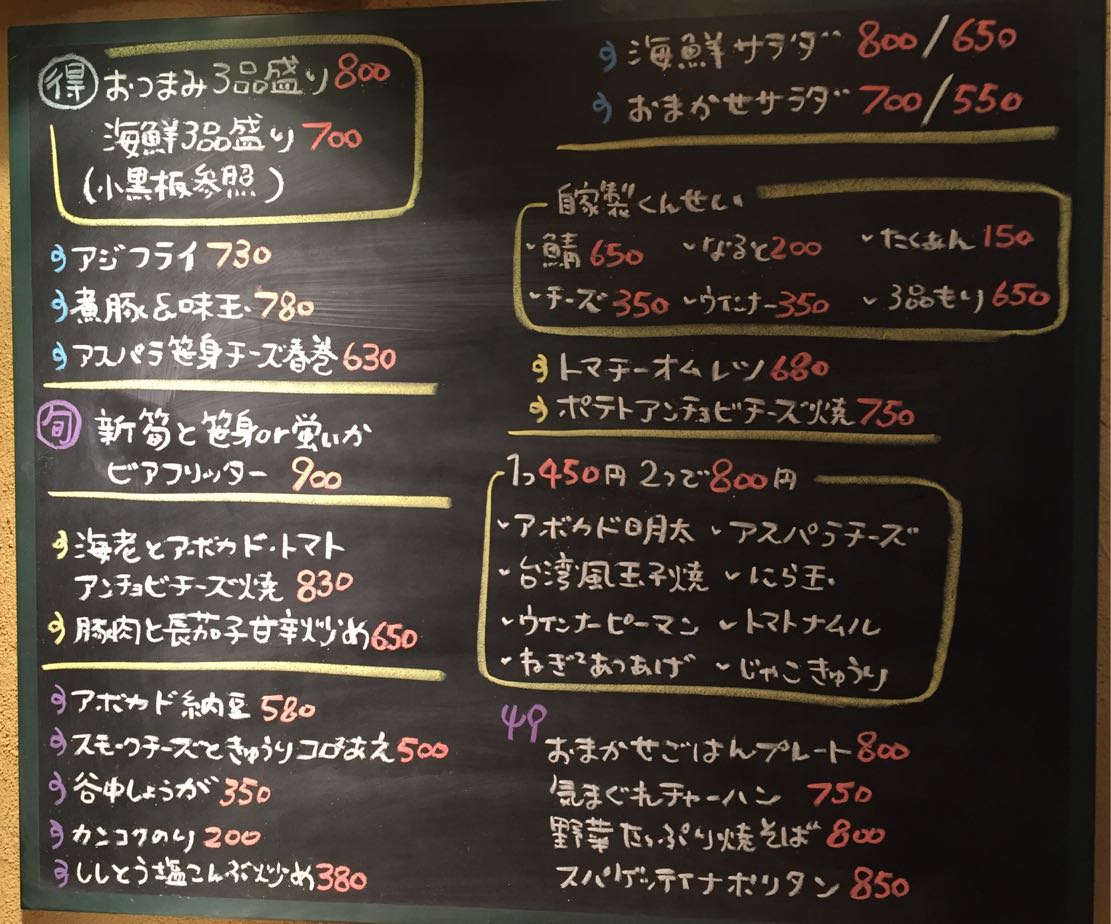 得 おつまみ3品盛り 800
海鮮3品盛り 700
(小黒板参照)
アジフライ 730
煮豚&味玉 780
アスパラ笹身チーズ春巻 630
旬 新筍と笹身or蛍いか
ビアフリッター 900
海老とアボカド・トマト
アンチョビチーズ焼 830
豚肉と長茄子甘辛炒め 650
アボカド納豆 580
スモークチーズときゅうりコロコロあえ 500
谷中しょうが 350
カンコクのり 200
ししとう塩こんぶ炒め 380
海鮮サラダ 800/650
おまかせサラダ 700/550
自家製くんせい
鯖 650 なると 200 たくあん 150
チーズ 350 ウインナー 350 3品もり 650
トマチーオムレツ 680
ポテトアンチョビチーズ焼 750
1つ450円 2つで800円
アボカド明太 アスパラチーズ
台湾風玉子焼 にら玉
ウインナーピーマン トマトナムル
ねぎねぎあつあげ じゃこきゅうり
おまかせごはんプレート 800
気まぐれチャーハン 750
野菜たっぷり焼そば 800
スパゲッティナポリタン 850